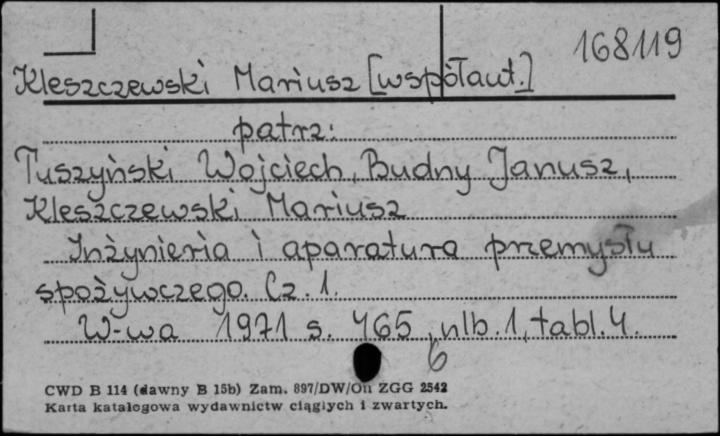 168119
Kleszczewski Mariusz [współaut.]
patrz:
Tuszyński Wojciech, Budny Janusz,
Kleszczewski Mariusz
Inżynieria i aparatura przemysłu
spożywczego. Cz. 1.
W-wa 1971 s. 465, nlb. 1, tabl. 4.
6
CWD B 114 (dawny B 15b) Zam. 897/DW/Oń ZGG 2542
Karta katalogowa wydawnictw ciągłych i zwartych.